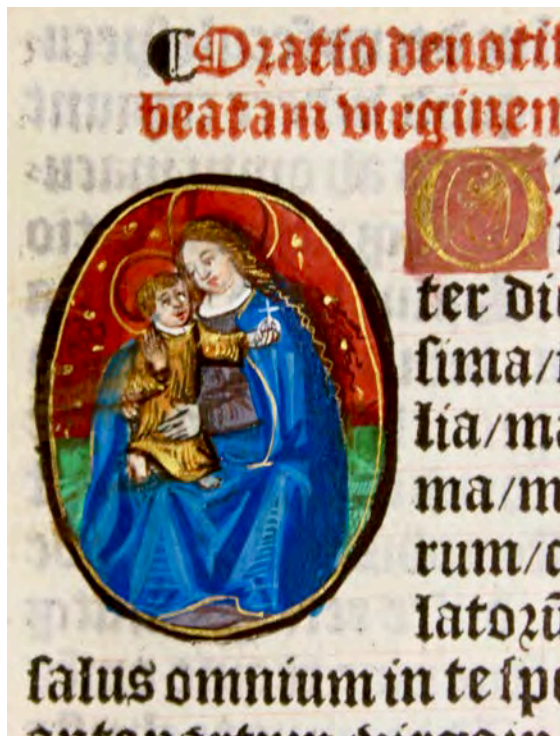 Oratio deuoti
beatam virginem
O
ter di
sima/
lia/ma
ma/m
rum/c
latorū
salus omnium in te spe